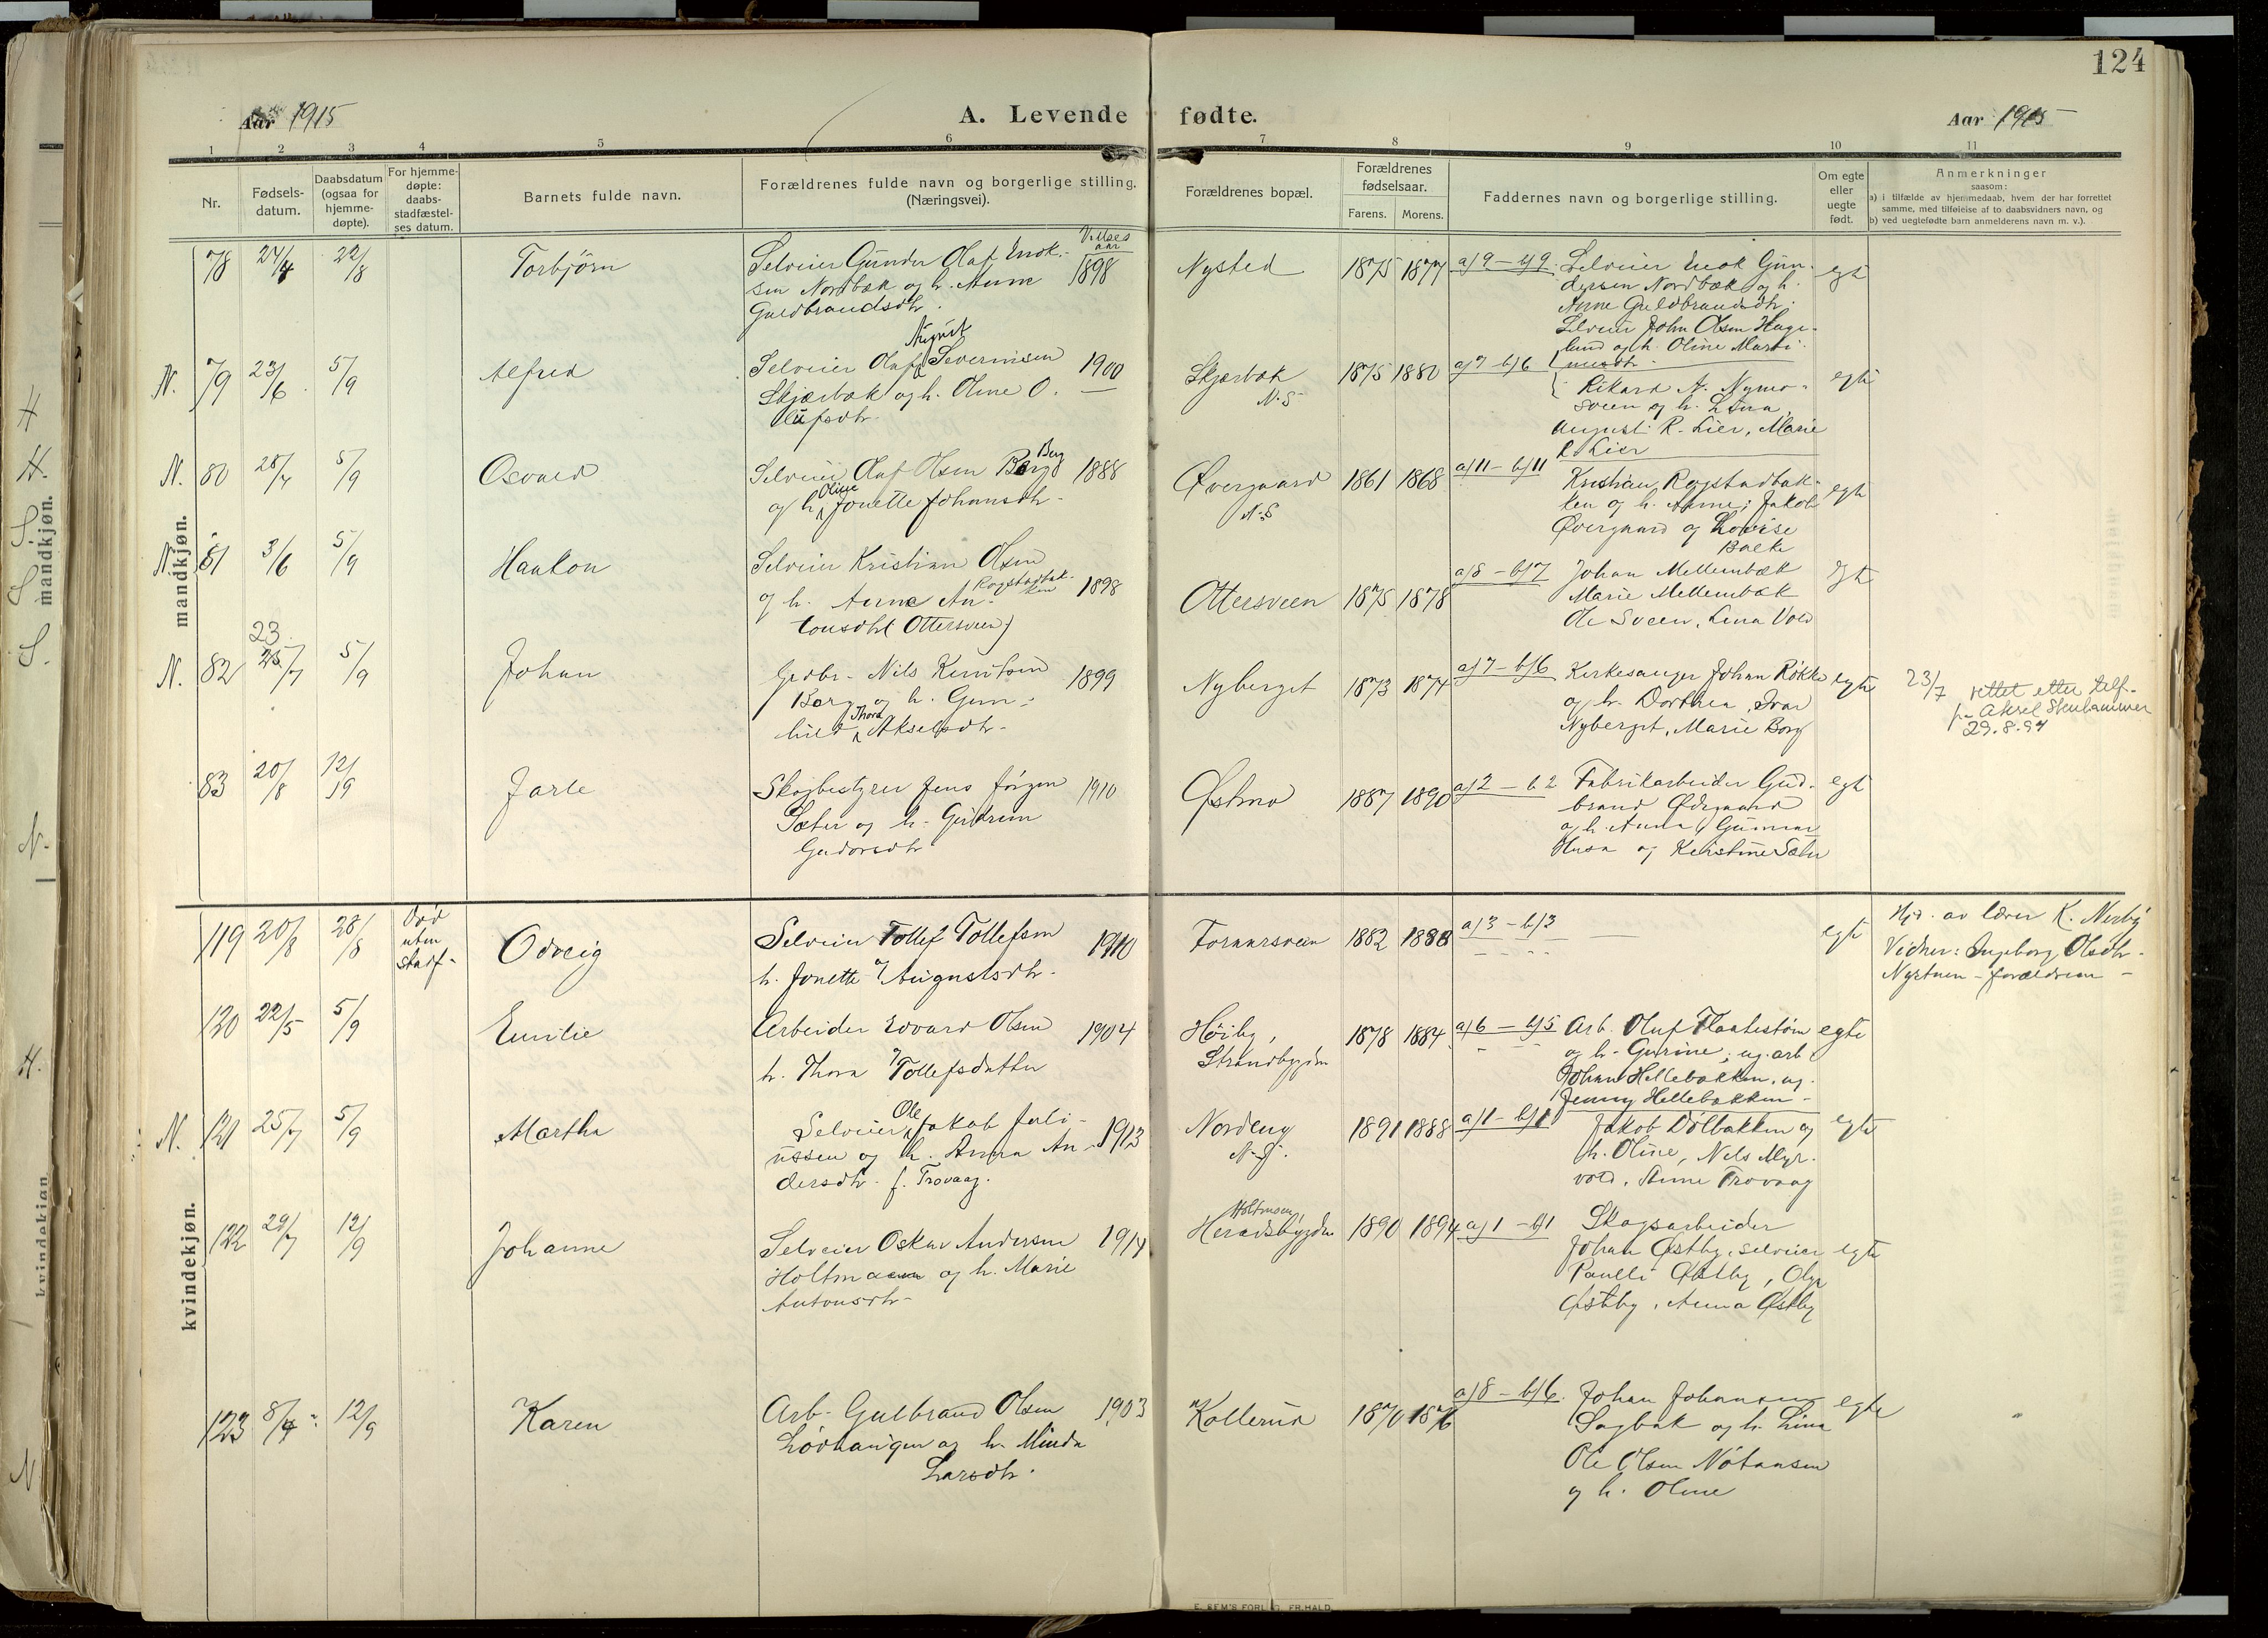 124
Aar 1915
A. Levende fødte.
Aar 1915
1 2 3 4 5 6 7 8 9 10 11
Nr.
Fødsels-
datum.
Daabsdatum
(ogsaa for
hjemme-
døpte).
For hjemme-
døpte:
daabs-
stadfæstel-
ses datum.
Barnets fulde navn.
Forældrenes fulde navn og borgerlige stilling.
(Næringsvei).
Vielses
aar
Forældrenes bopæl.
Forældrenes
fødselsaar.
Farens. Morens.
Faddernes navn og borgerlige stilling.
Om egte
eller
uegte
født.
Anmerkninger
saasom:
a) i tilfælde av hjemmedaab, hvem der har forrettet
samme, med tilføielse af to daabsvidners navn, og
b) ved uegtefødte barn anmelderens navn m. v.).
mandkjøn.
78 24/4 22/8 Torbjørn
Selveier Gunder Olaf Enok-
sen Nordbæk og h. Anne
Guldbrandsdtr.
1898
Nysted 1875 1877 a) 9 - b) 9
Selveier Enok Gun-
dersen Nordbæk og h.
Anne Guldbrandsdtr.
Selveier John Olsen Hage-
lund og h. Oline Marti-
nusdtr.
egte
N. 79 23/6 5/9 Alfred
August
Selveier Olaf Severinsen
Skjærbæk og h. Oline O.
Olufsdtr.
1900
Skjærbæk
N. S
1875 1880 a) 7 - b) 6
Rikard A. Nymo-
sveen og h. Lina,
August R. Lier, Marie
R. Lier
egte
N. 80 28/7 5/9 Osvald
Selveier Olaf Olsen Berg
Berg
og h. Oline Jonette Johansdtr.
1888
Øvergaard
N. S
1861 1868 a) 11 - b) 11
Kristian Rogstadbak-
ken og h. Anne; Jakob
Øvergaard og Lovise
Bakke
egte
N. 81 3/6 5/9 Haakon
Selveier Kristian Olsen
Rogstadbak-
ken
og h. Anne An-
tonsdtr. (Ottersveen)
1898
Ottersveen 1875 1878 a) 8 - b) 7
Johan Mellembæk
Marie Mellembæk
Ole Sveen, Lina Vold
egte
N. 82 23 25/7 5/9 Johan
Grdbr. Nils Knutsen
Borg og h. Gun-
hild Thora Akselsdtr.
1899
Nyberget 1873 1874 a) 7 - b) 6
Kirkesanger Johan Røkke
og h. Dorthea, Ivar
Nyberget, Marie Borg
egte
23/7 rettet etter telf.
fra Aksel Stenhammer
29.8.94
83 20/8 12/9 Jarle
Skogbestyrer Jens Jörgen
Sæter og h. Gudrun
Gudorsdtr
1910
Østmo 1887 1890 a) 2 - b 2
Fabrikarbeider Gud-
brand Ødegaard
og h. Anna, Gunnar
Husa og Kristine Sæter
egte
kvindekjøn.
119 20/8 28/8
Død
uten
stadf-
Odveig
Selveier Tollef Tollefsen
h. Jonette Augustsdtr.
1910
Fornarsveen 1882 1888 a) 3 - b) 3
egte
Hjd. av lærer K. Nerby
Vidner: Ingeborg Olsdtr.
Nystuen - forældrene -
120 22/5 5/9 Emilie
Arbeider Edvard Olsen
h. Thora Tollefsdatter
1904
Høiby,
Strandbygden
1878 1884 a) 6 - b) 5
Arb. Oluf Flaatestøm
og h. Gurine; ug. arb
Johan Hellebækken, ug.
Jenny Hellebækken -
egte
N. 121 25/7 5/9 Martha
Selveier Ole Jakob Juli-
ussen og h. Anna An-
dersdtr. f. Trovaag.
1913
Nordeng
N. S.
1891 1888 a) 1 - b) 1
Jakob Dølbakken og
h. Oline, Nels Myr-
vold, Anne Trovaag
egte
122 29/7 12/9 Johanne
Selveier Oskar Andersen
Holtmoen og h. Marie
Antonsdtr-
1914
Holtmoen,
Heradsbygden
1890 1894 a) 1 - b) 1
Skogsarbeider
Johan Østby, selveier
Paulli Østby, Olga
Østby, Anna Østby
egte
123 8/7 12/9 Karen
Arb. Gulbrand Olsen
Lövhaugen og h. Minda
Larsdtr.
1903
Kollerud 1870 1876 a) 8 - b) 6.
Johan Johansen
Sagbak og h. Lina
Ole Olsen Nötaasen
og h. Oline
egte
E. SEM'S FORLAG, FR.HALD.